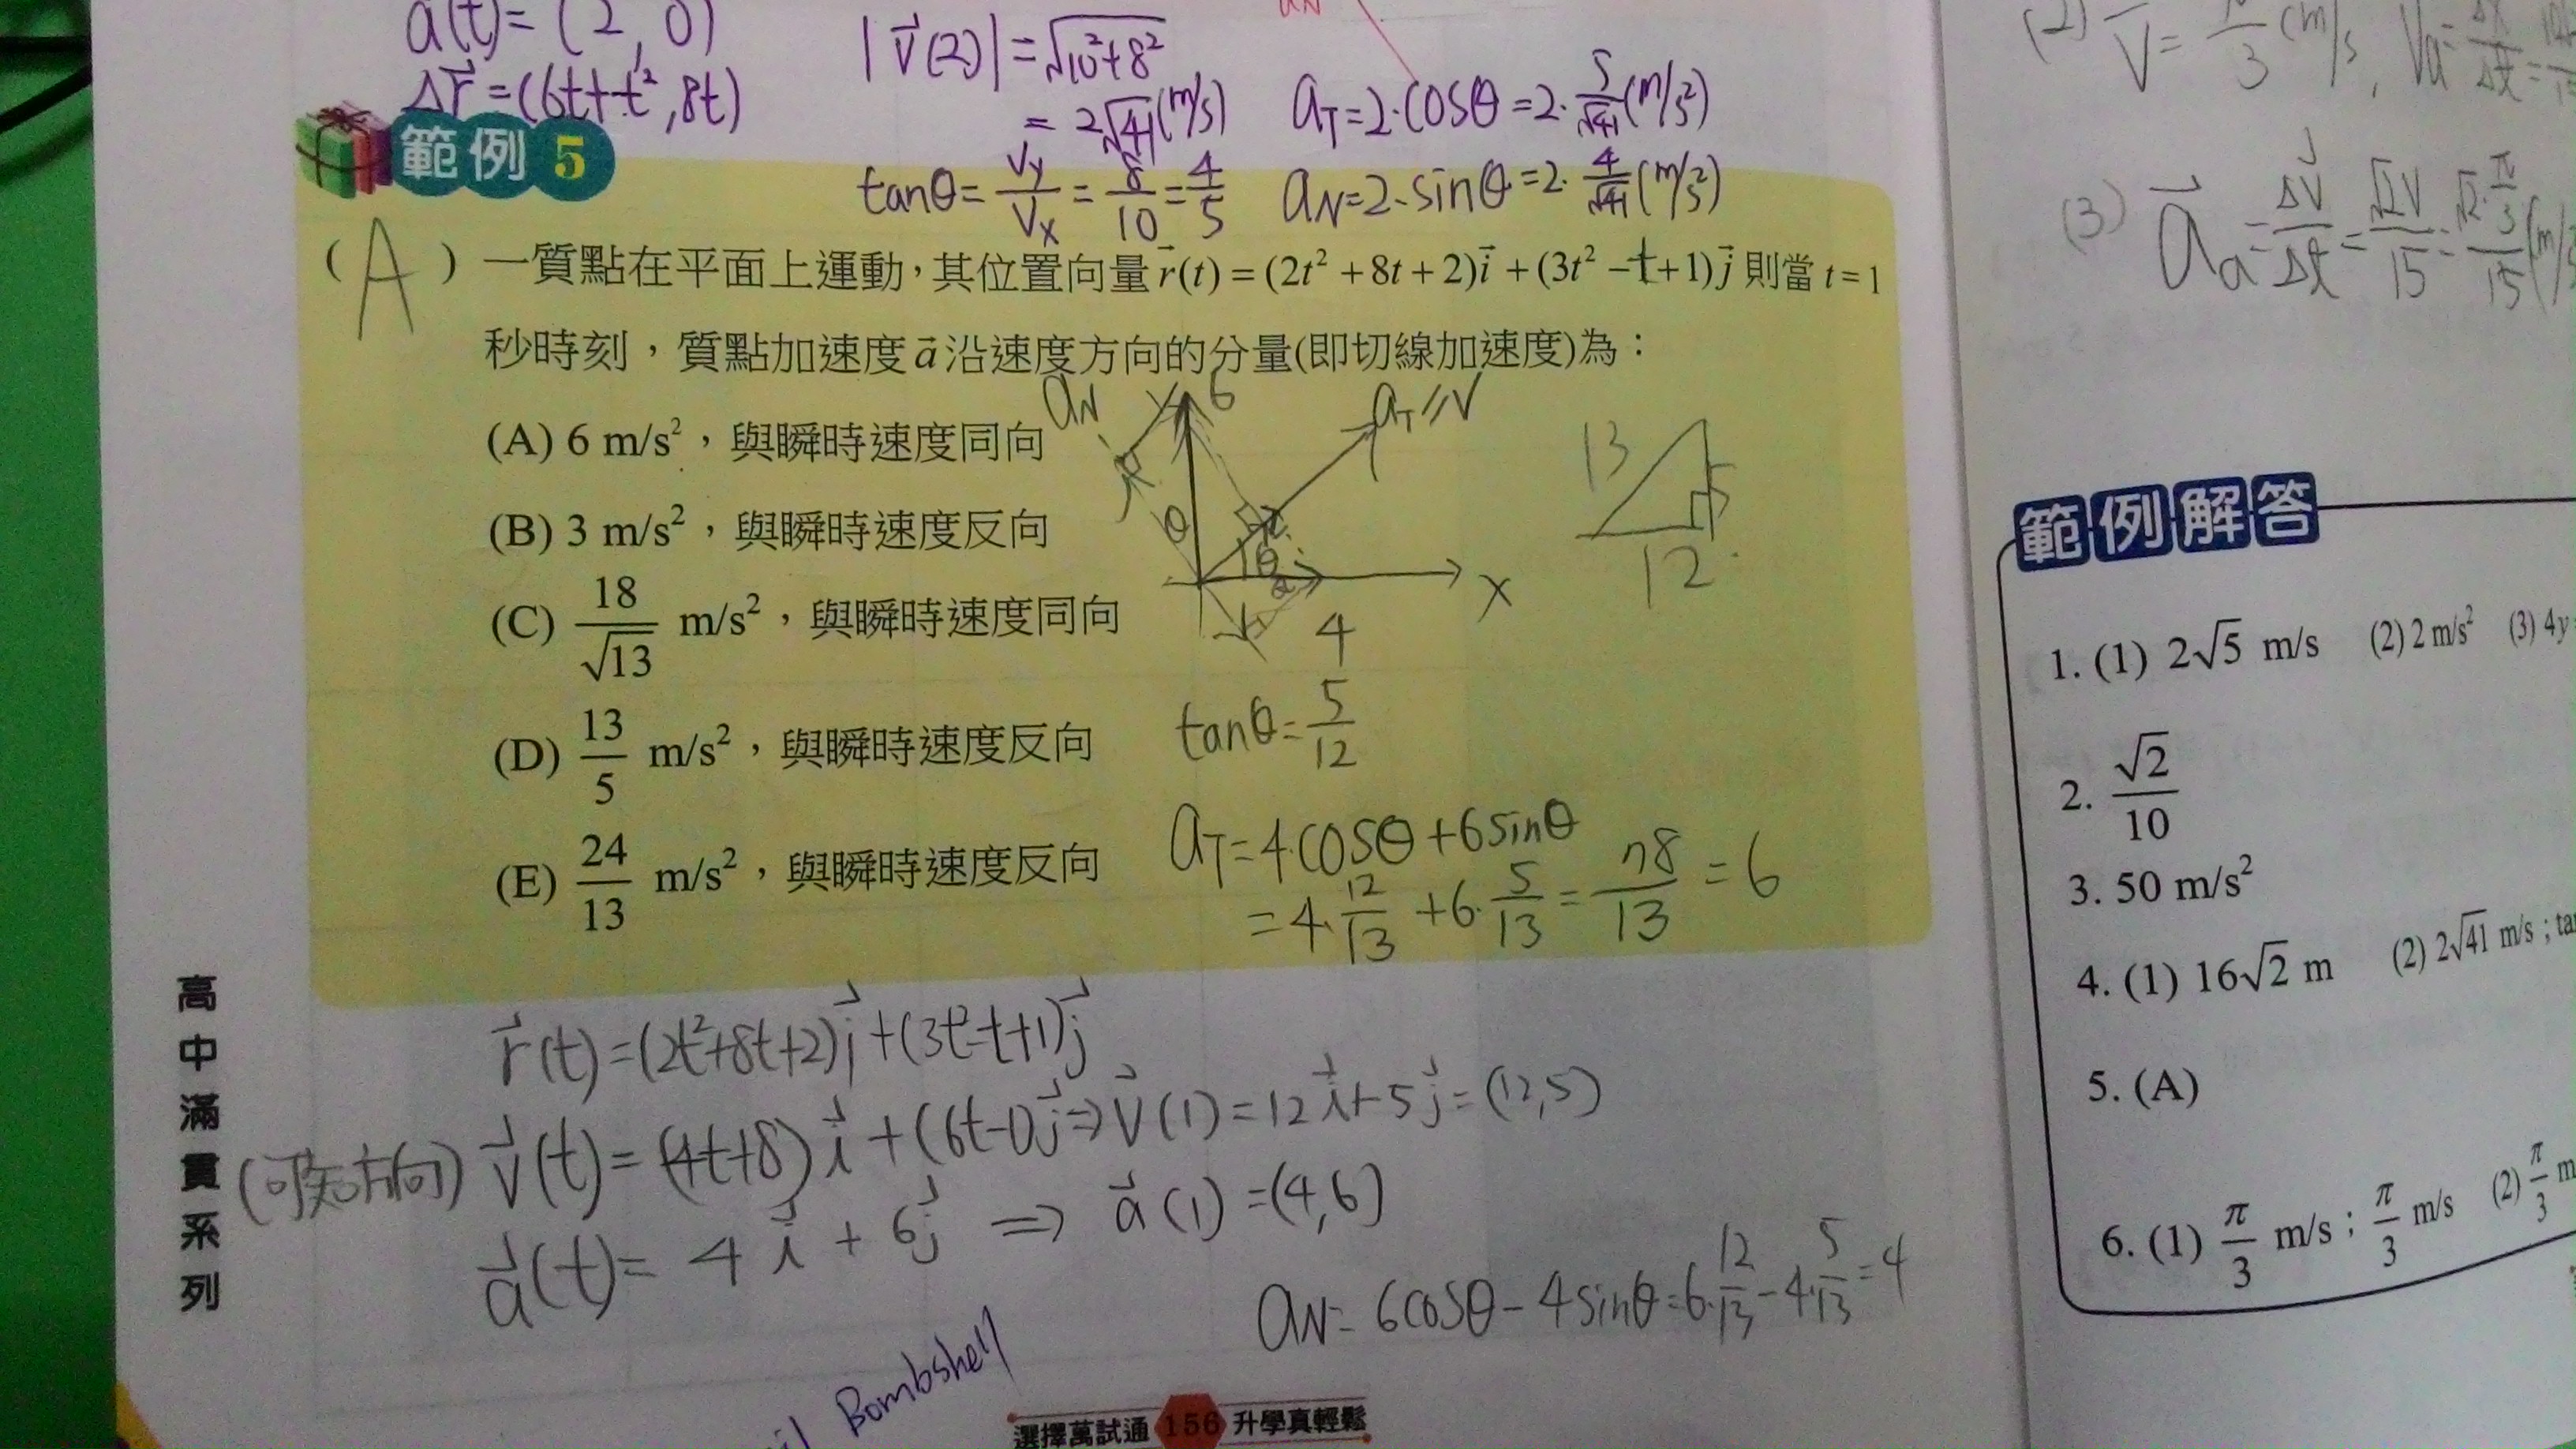 a(t)=(2,0)
Δr=(6t+t²,8t)
|v(2)|=√10²+8²
=2√41(m/s)
tanθ=Vy/Vx=8/10=4/5
aN
aT=2·cosθ=2·5/√41(m/s²)
aN=2·sinθ=2·4/√41(m/s²)
範例 5
(A) 一質點在平面上運動，其位置向量 r(t)=(2t²+8t+2)i+(3t²-t+1)j 則當 t=1
秒時刻，質點加速度 a 沿速度方向的分量(即切線加速度)為：
(A) 6 m/s²，與瞬時速度同向
(B) 3 m/s²，與瞬時速度反向
(C) 18/√13 m/s²，與瞬時速度同向
(D) 13/5 m/s²，與瞬時速度反向
(E) 24/13 m/s²，與瞬時速度反向
aN
y 6
aT//V
θ
θ
x
4
13
5
12
tanθ=5/12
aT=4cosθ+6sinθ
=4·12/13+6·5/13=78/13=6
r(t)=(2t²+8t+2)i+(3t²-t+1)j
(可知方向) v(t)=(4t+8)i+(6t-1)j⇒v(1)=12i+5j=(12,5)
a(t)=4i+6j⇒a(1)=(4,6)
aN=6cosθ-4sinθ=6·12/13-4·5/13=4
Bombshell
高中滿貫系列
選擇萬試通 156 升學真輕鬆
(2) V=π/3(m/s, Va=Δx/Δt=
(3) aa=ΔV/Δt=√2V/15=√2·π/3/15(m/
範例解答
1. (1) 2√5 m/s (2) 2 m/s² (3) 4y
2. √2/10
3. 50 m/s²
4. (1) 16√2 m (2) 2√41 m/s；ta
5. (A)
6. (1) π/3 m/s；π/3 m/s (2) π/3 m